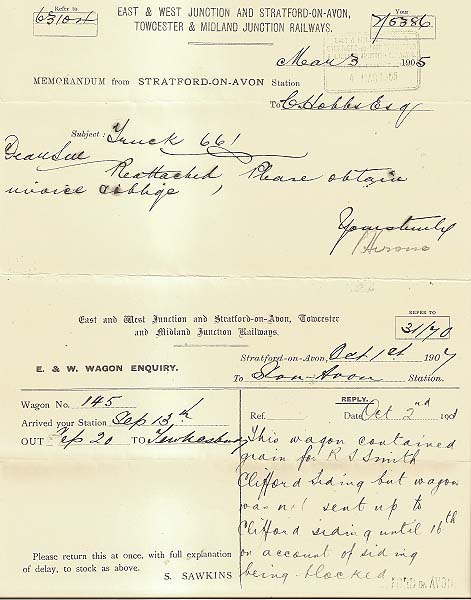 Refer to
EAST & WEST JUNCTION AND STRATFORD-ON-AVON,
TOWCESTER & MIDLAND JUNCTION RAILWAYS.
Your
7/5386
Mar 3 1905
MEMORANDUM from STRATFORD-ON-AVON Station
To C. Hobbs Esq
Subject: Truck 661
Dear Sir
Reattached Please obtain
invoice & oblige
Yours truly
East and West Junction and Stratford-on-Avon, Towcester
and Midland Junction Railways.
REFER TO
31/70
Stratford-on-Avon, Oct 1st 1907
E. & W. WAGON ENQUIRY.
To S on Avon Station.
Wagon No. 145
Arrived your Station Sep 13th
OUT Sep 20 To Tewkesbury
REPLY.
Ref. Date Oct 2nd 190
This wagon contained
grain for R S Smith
Clifford Siding but wagon
was not sent up to
Clifford siding until 16th
on account of siding
being blocked
Please return this at once, with full explanation
of delay, to stock as above.
S. SAWKINS